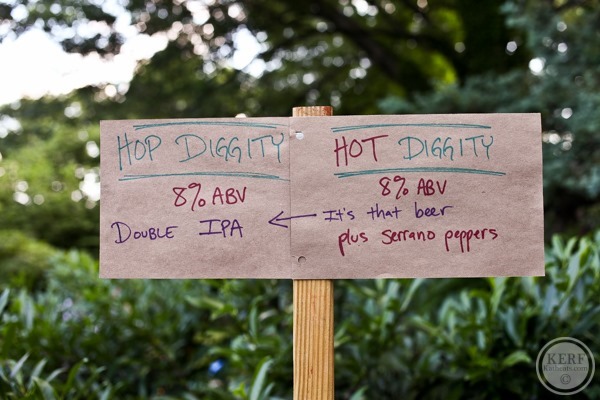 HOP DIGGITY
8% ABV
DOUBLE IPA
HOT DIGGITY
8% ABV
It's that beer
plus serrano peppers
KERF
Katheats.com
©